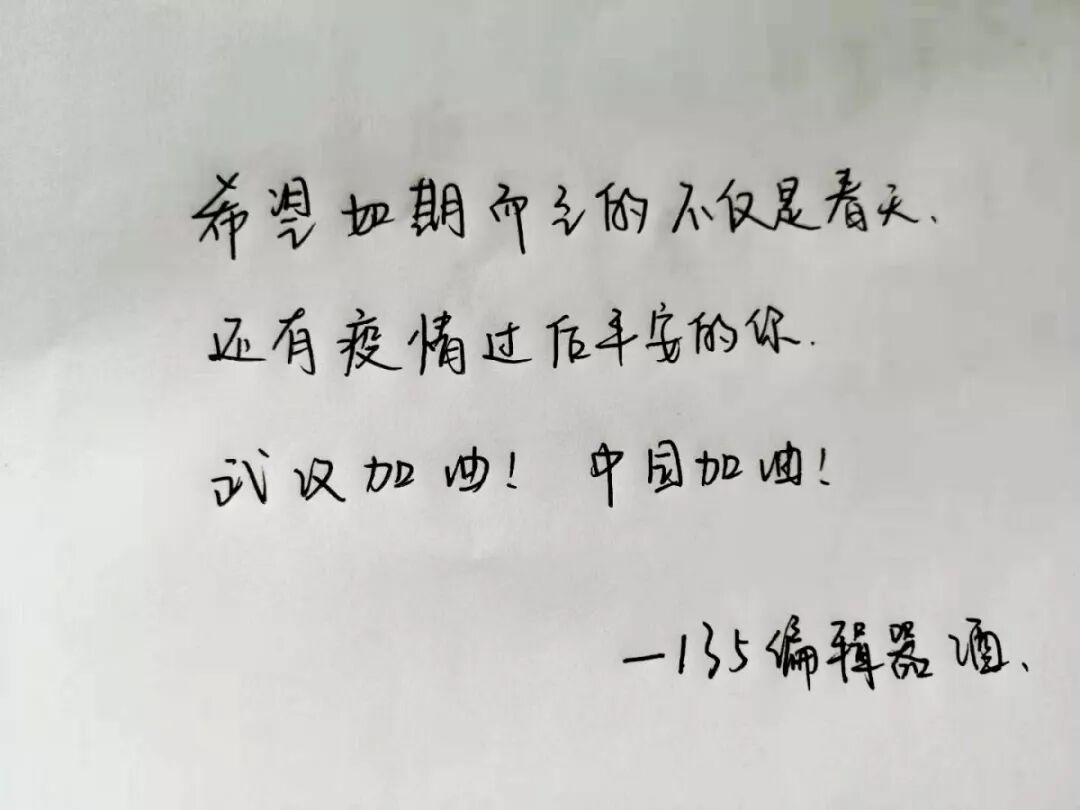 希望如期而至的不仅是春天、
还有疫情过后平安的你.
武汉加油! 中国加油!
—135编辑器 酒、